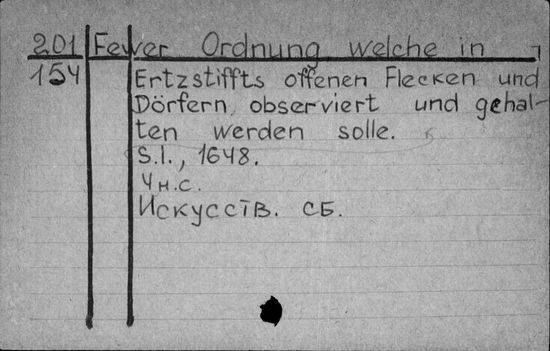 201 Fewer Ordnung welche in
154 Ertzstiffts offenen Flecken und
Dörfern observiert und gehal-
ten werden solle.
S.l., 1648.
4 н.с.
Искусств. СБ.